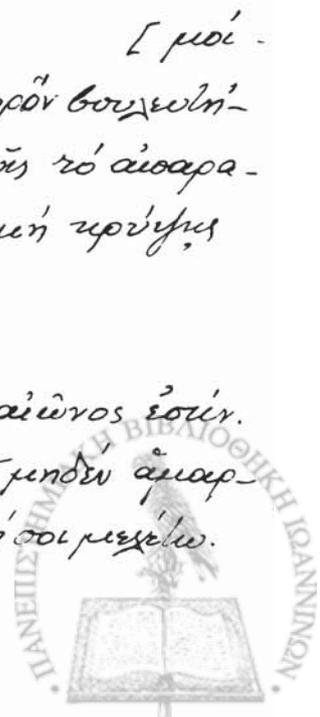 [ μοί -
ρὸν βουλευτή-
οῖς τὸ ἀπαρα-
μὴ κρύψῃς
αἰῶνος ἐστίν.
μηδὲν ἁμαρ-
σοι μελέτω.
ΠΑΝΕΠΙΣΤΗΜΙΑΚΗ ΒΙΒΛΙΟΘΗΚΗ ΙΩΑΝΝΙΝΩΝ